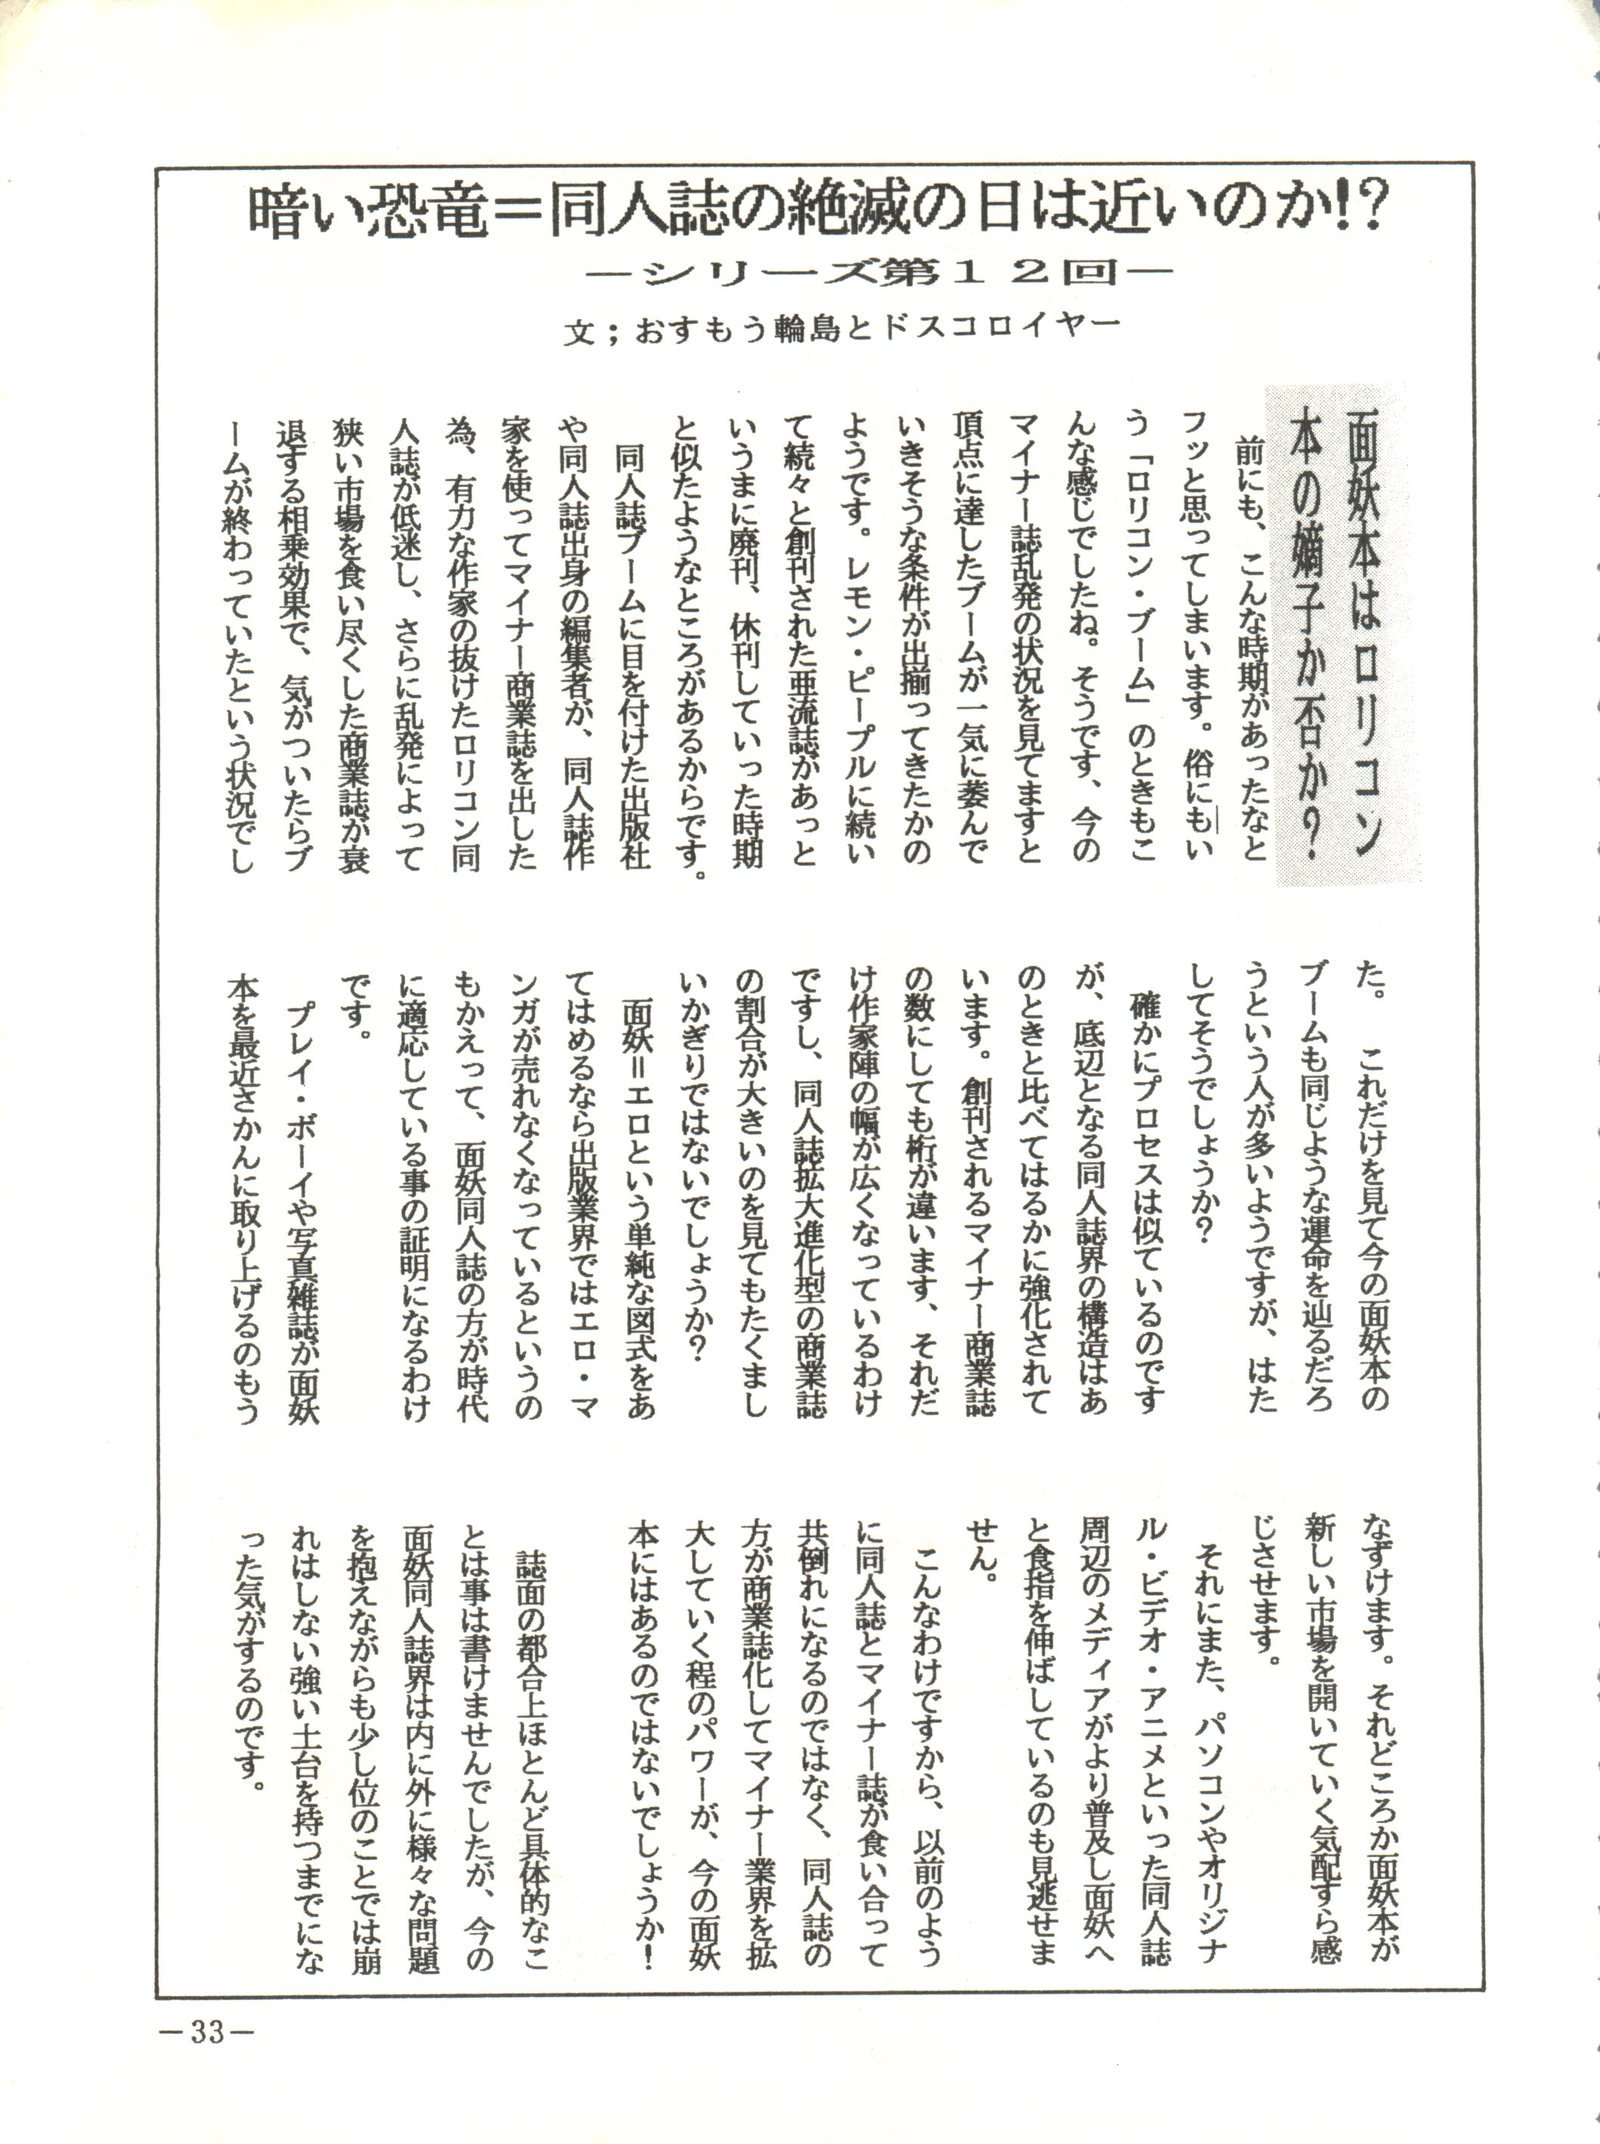 暗い恐竜＝同人誌の絶滅の日は近いのか!?
―シリーズ第１２回―
文；おすもう輪島とドスコロイヤー
面妖本はロリコン
本の嫡子か否か？
前にも、こんな時期があったなと
フッと思ってしまいます。俗にもい
う「ロリコン・ブーム」のときもこ
んな感じでしたね。そうです、今の
マイナー誌乱発の状況を見てますと
頂点に達したブームが一気に萎んで
いきそうな条件が出揃ってきたかの
ようです。レモン・ピープルに続い
て続々と創刊された亜流誌があっと
いうまに廃刊、休刊していった時期
と似たようなところがあるからです。
同人誌ブームに目を付けた出版社
や同人誌出身の編集者が、同人誌作
家を使ってマイナー商業誌を出した
為、有力な作家の抜けたロリコン同
人誌が低迷し、さらに乱発によって
狭い市場を食い尽くした商業誌が衰
退する相乗効果で、気がついたらブ
ームが終わっていたという状況でし
た。　これだけを見て今の面妖本の
ブームも同じような運命を辿るだろ
うという人が多いようですが、はた
してそうでしょうか？
確かにプロセスは似ているのです
が、底辺となる同人誌界の構造はあ
のときと比べてはるかに強化されて
います。創刊されるマイナー商業誌
の数にしても桁が違います、それだ
け作家陣の幅が広くなっているわけ
ですし、同人誌拡大進化型の商業誌
の割合が大きいのを見てもたくまし
いかぎりではないでしょうか？
面妖＝エロという単純な図式をあ
てはめるなら出版業界ではエロ・マ
ンガが売れなくなっているというの
もかえって、面妖同人誌の方が時代
に適応している事の証明になるわけ
です。
プレイ・ボーイや写真雑誌が面妖
本を最近さかんに取り上げるのもう
なずけます。それどころか面妖本が
新しい市場を開いていく気配すら感
じさせます。
それにまた、パソコンやオリジナ
ル・ビデオ・アニメといった同人誌
周辺のメディアがより普及し面妖へ
と食指を伸ばしているのも見逃せま
せん。
こんなわけですから、以前のよう
に同人誌とマイナー誌が食い合って
共倒れになるのではなく、同人誌の
方が商業誌化してマイナー業界を拡
大していく程のパワーが、今の面妖
本にはあるのではないでしょうか！
誌面の都合上ほとんど具体的なこ
とは事は書けませんでしたが、今の
面妖同人誌界は内に外に様々な問題
を抱えながらも少し位のことでは崩
れはしない強い土台を持つまでにな
った気がするのです。
－33－